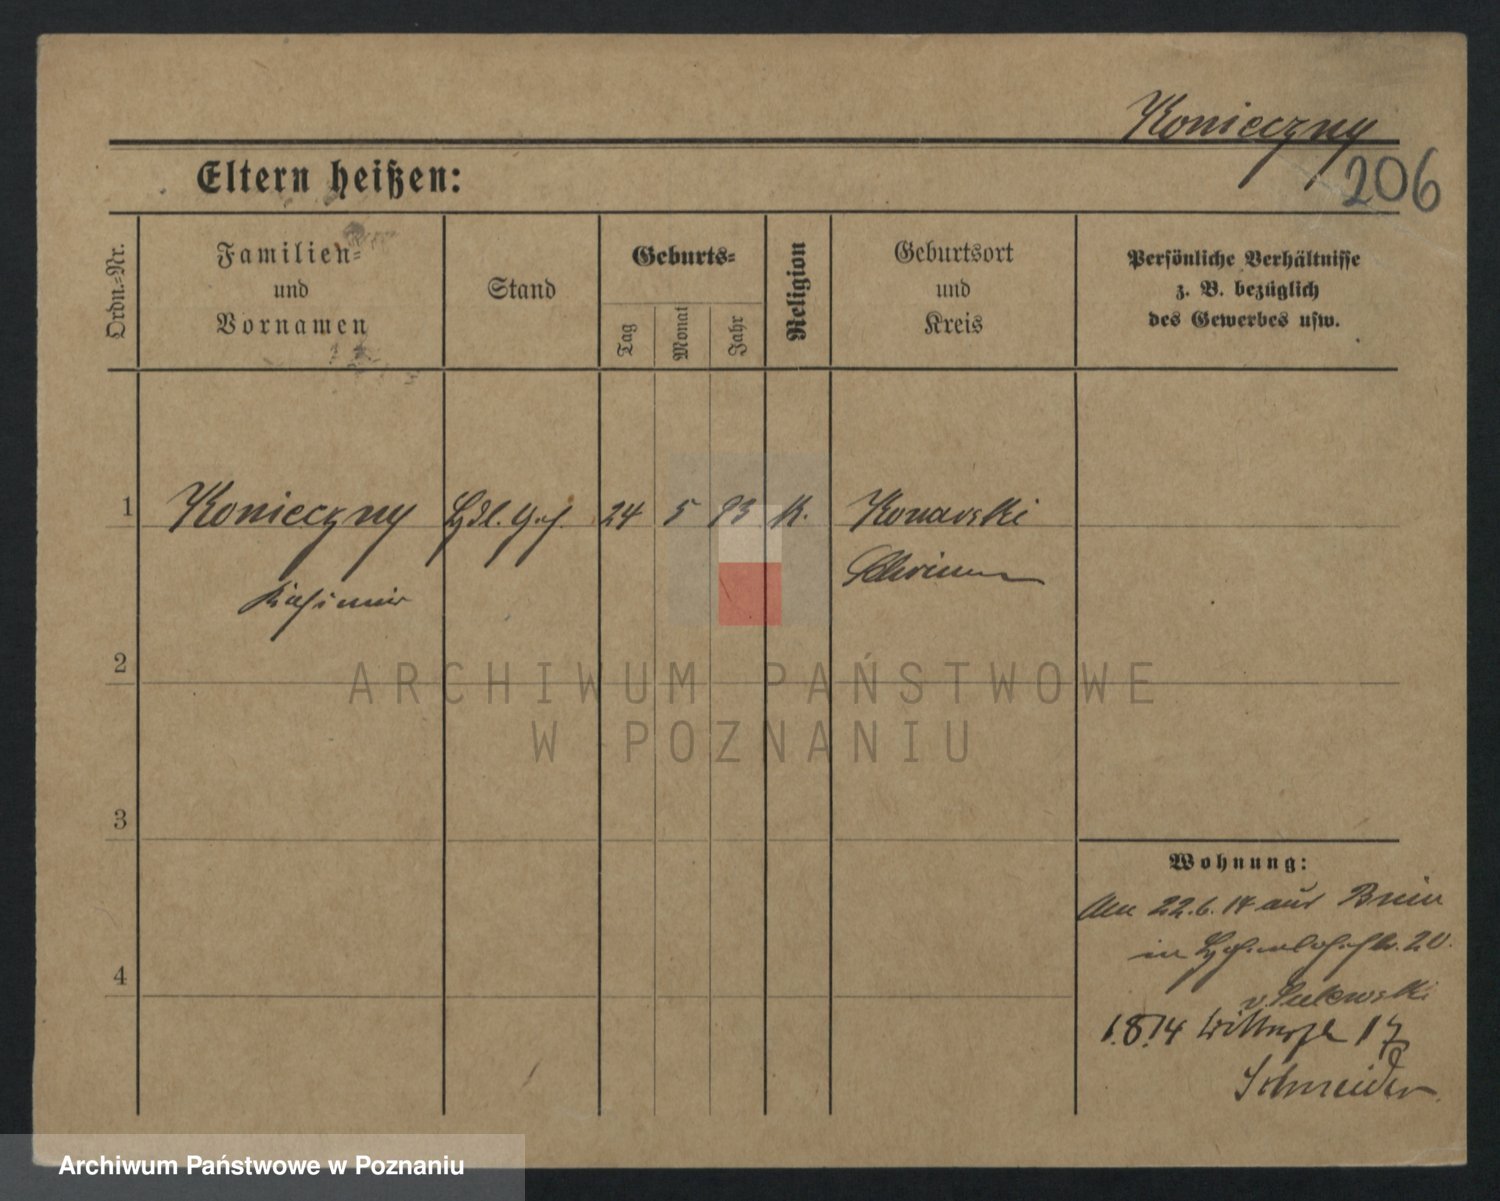 Konieczny
206
Eltern heißen:
Ordn.-Nr.
Familien-
und
Vornamen
Stand
Geburts-
Tag
Monat
Jahr
Religion
Geburtsort
und
Kreis
Persönliche Verhältnisse
z. B. bezüglich
des Gewerbes usw.
1
Konieczny
24
5
93
K.
Konarski
Kasimir
Schrimm
2
ARCHIWUM PAŃSTWOWE
W POZNANIU
3
Wohnung:
Am 22.6.14 aus Bnin
in 20.
4
v. Sulewski
1.8.14 17
Schneider
Archiwum Państwowe w Poznaniu